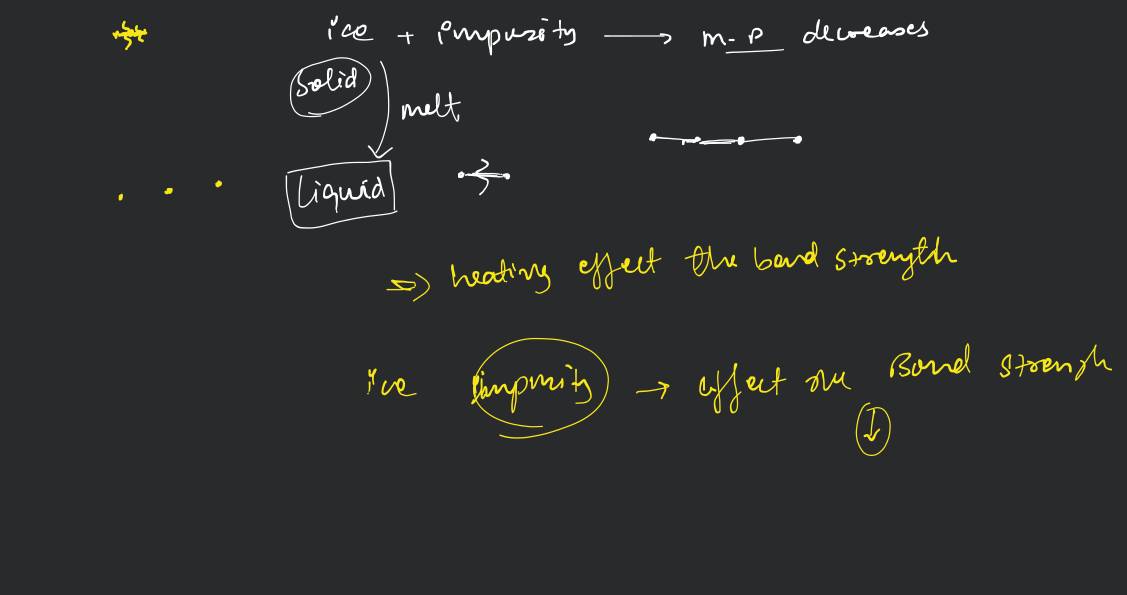 ice + impurity → m.p decreases
solid
melt
Liquid
⇒ heating effect the bond strength
ice impurity → effect the Bond strength
↓